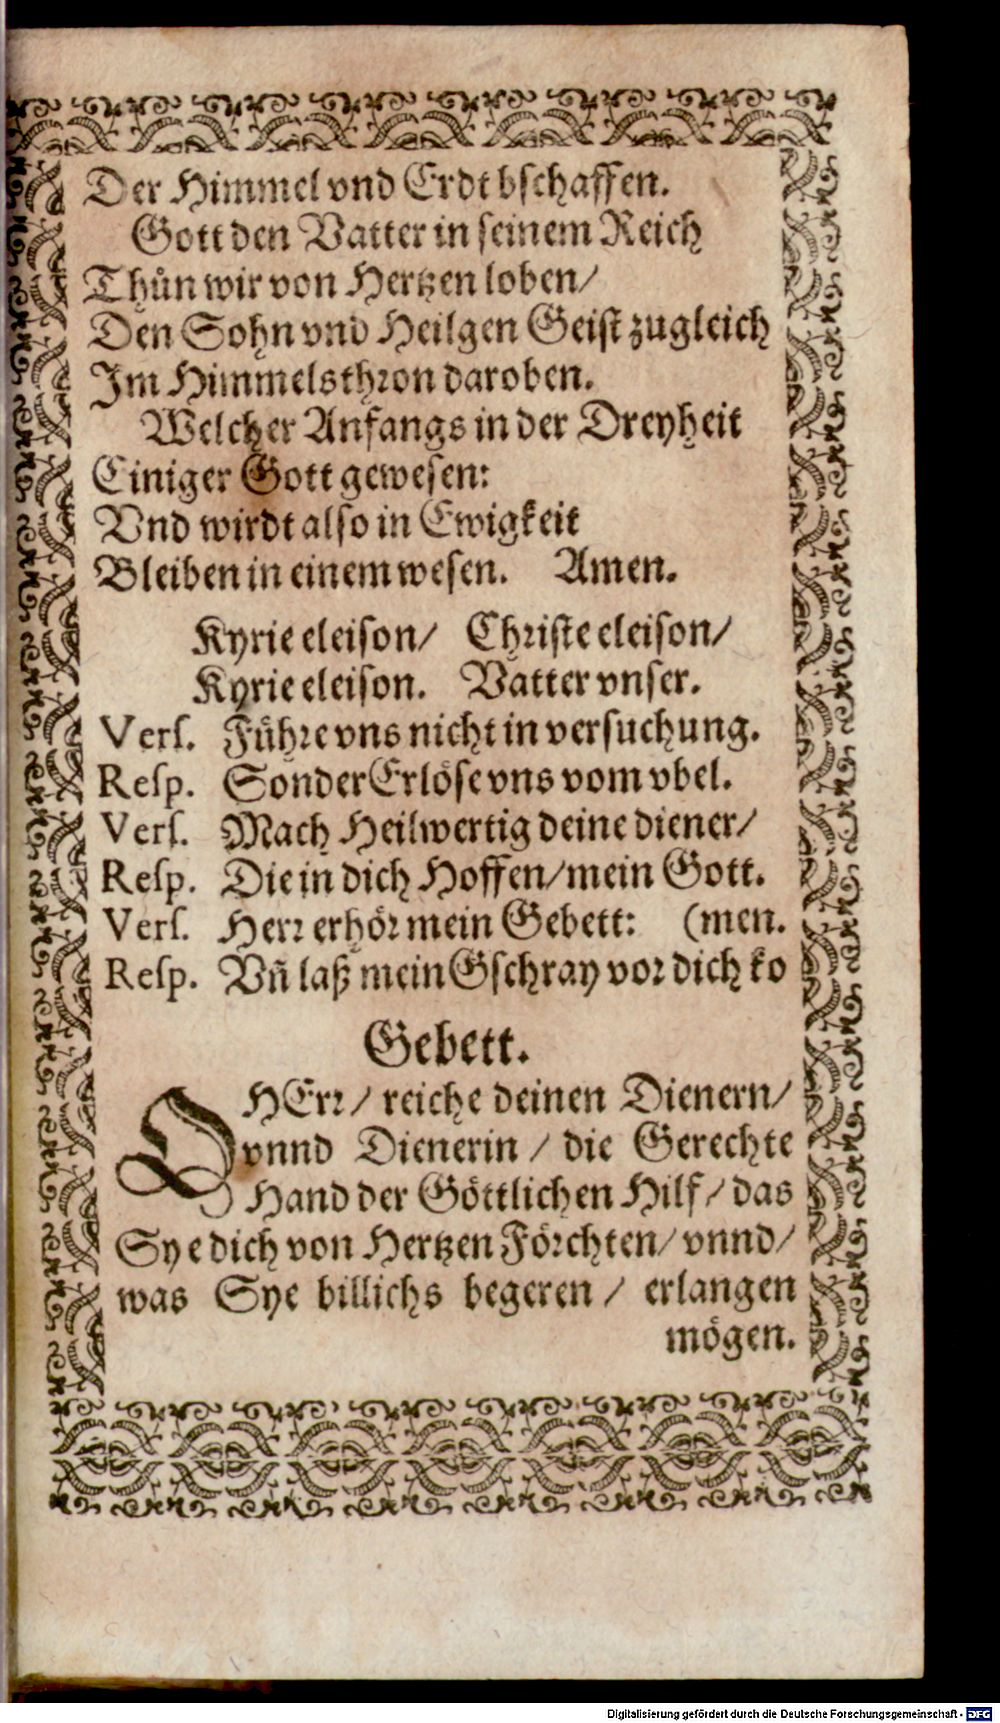 Der Himmel vnd Erdt bschaffen.
Gott den Vatter in seinem Reich
Thůn wir von Hertzen loben/
Den Sohn vnd Heilgen Geist zugleich
Im Himmelsthron daroben.
Welcher Anfangs in der Dreyheit
Einiger Gott gewesen:
Vnd wirdt also in Ewigkeit
Bleiben in einem wesen. Amen.
Kyrie eleison/ Christe eleison/
Kyrie eleison. Vatter vnser.
Vers. Führe vns nicht in versuchung.
Resp. Sonder Erlöse vns vom vbel.
Vers. Mach Heilwertig deine diener/
Resp. Die in dich Hoffen/mein Gott.
Vers. Herr erhör mein Gebett: (men.
Resp. Vñ laß mein Gschray vor dich ko
Gebett.
O HErr/ reiche deinen Dienern/
vnnd Dienerin / die Gerechte
Hand der Göttlichen Hilf/ das
Sye dich von Hertzen Förchten/ vnnd/
was Sye billichs begeren / erlangen
mögen.
Digitalisierung gefördert durch die Deutsche Forschungsgemeinschaft - DFG